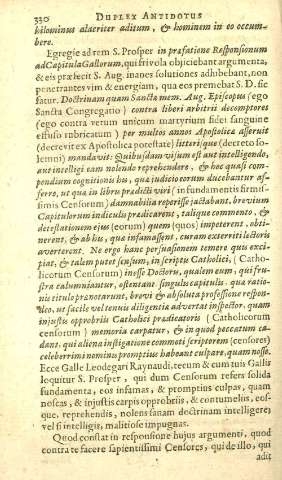 330 DUPLEX ANTIDOTUS
hilominus alacriter aditum, & hominem in eo occum-
bere.
Egregie ad rem S. Prosper in præfatione Responsionum
ad Capitula Gallorum, qui frivola objiciebant argumenta,
& eis præfecit S. Aug. inanes solutiones adhubebant, non
penetrantes vim & energiam, qua eos premebat S. D. sic
fatur. Doctrinam quam Sanctæ mem. Aug. Episcopus (ego
Sancta Congregatio) contra liberi arbitrii decomptores
(ego contra verum unicum martyrium fidei sanguine
effuso rubricatum) per multos annos Apostolicè asseruit
(decrevit ex Apostolica potestate) litterisque (decreto so-
lemni) mandavit: Quibusdam visum est aut intelligendo,
aut intelligi eam nolendo reprehendere, & hoc quasi com-
pendium cognitionis his, qua judicio eorum ducebantur af-
ferre, ut qua in libris prædicti viri (in fundamentis firmis-
simis Censorum) damnabilia reperisse jactabant, brevium
Capitulorum indiculo prædicarent, talique commento, &
detestationem ejus (eorum) quem (quos) impeterent. obti-
nerent, & ab his, qua infamassent, curam exterriti lectoris
averterent. Ne ergo hanc persuasionem temere quis exci-
piat, & talem putet sensum, in scriptis Catholici, (Catho-
licorum Censorum) inesse Doctoris, qualem eum, qui fru-
stra calumniantur, ostentant singulis capitulis. qua ratio-
nis titulo pranotarunt, brevi & absoluta professione respon-
deo, ut facile vel tenuis diligentia advertat inspector, quam
injustis opprobriis Catholici prædicatoris (Catholicorum
censorum) memoria carpatur, & in quod peccatum ca-
dant, qui aliena instigatione commoti scriptorem (censores)
celeberrimi nominis promptius habeant culpare, quam nosse.
Ecce Galle Leodegari Raynaudi, tecum & cum tuis Gallis
loquitur S. Prosper, qui dum Censorum refers solida
fundamenta, eos infamas, & promptius culpas, quam
noscas, & injustis carpis opprobriis, & contumelus, eos-
que reprehendis, nolens sanam doctrinam intelligere;
vel si intelligis, malitiose impugnas.
Quod constat in responsione hujus argumenti, quod
contra te facere sapientissimi Censores, qui de illo, qui
adit